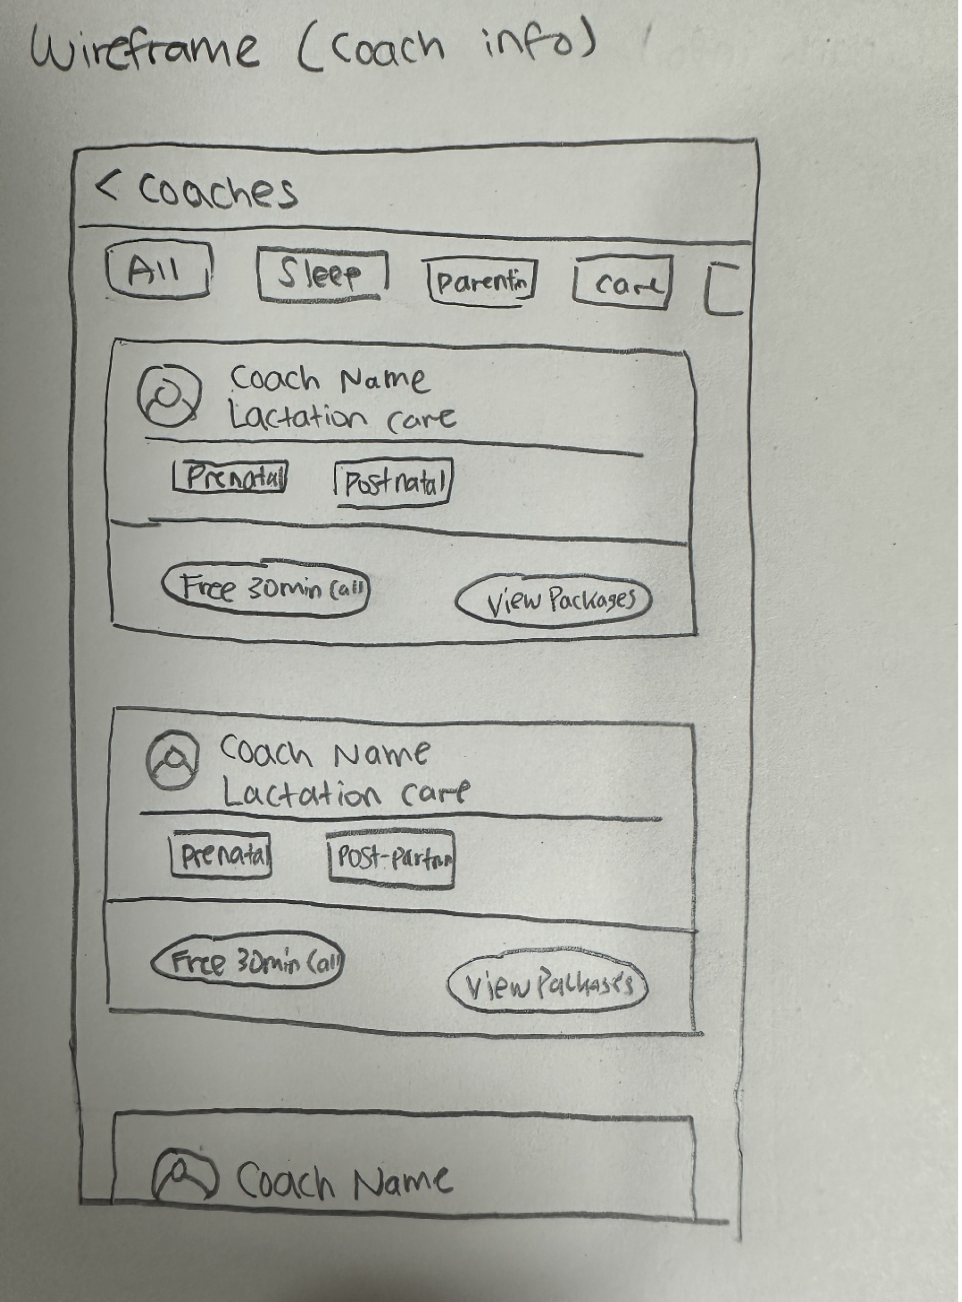 Wireframe (Coach info)
< Coaches
All Sleep Parentin Care
Coach Name
Lactation care
Prenatal Postnatal
Free 30min Call View Packages
Coach Name
Lactation care
Prenatal Post-partum
Free 30min Call View Packages
Coach Name